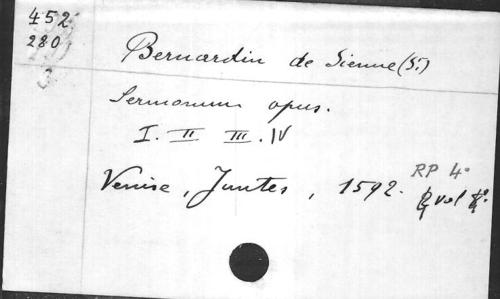 452
280
Bernardin de Sienne (St)
Sermonum opus.
I. II III. IV
RP 4°
Venise, Juntes, 1592. vol